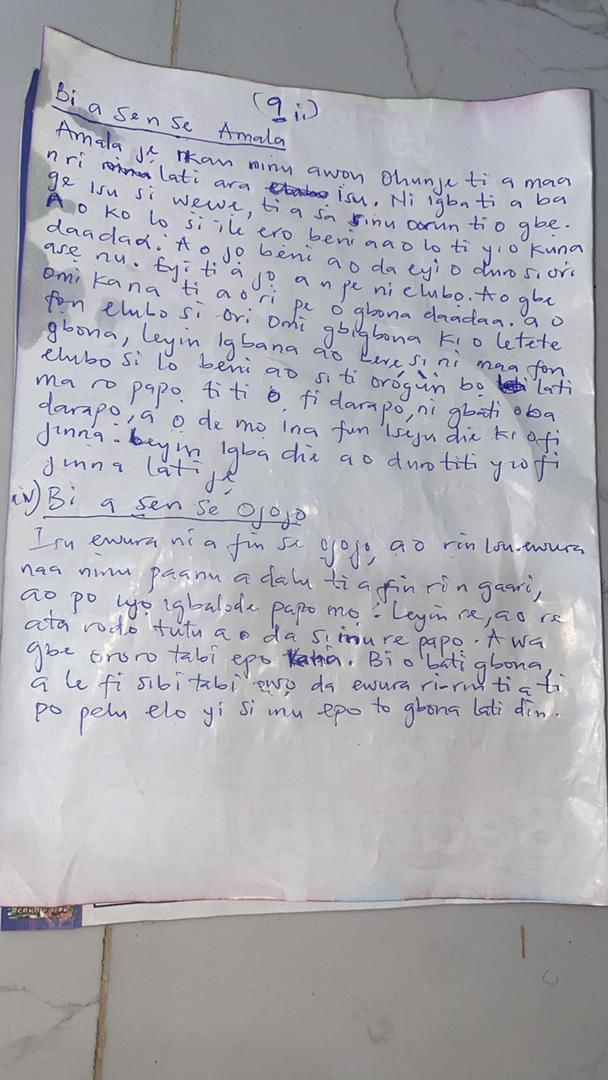 (9 ii)
Bi a sen se Amala
Amala je nkan ninu awon Ohunje ti a maa
n ri lati ara isu. Ni igba ti a ba
ge Isu si wewe, ti a sa sinu orun ti o gbe.
A o ko lo si ile ero beni aao lo ti yio kuna
daadaa. A o jo beni ao da eyi o duro si ori
ase nu. Eyi ti a jo a n pe ni elubo. Ao gbe
omi kana ti a o ri pe o gbona daadaa. a o
fon elubo si ori omi gbigbona ki o letete
gbona, leyin Igbana ao bere si ni maa fon
elubo si lo beni ao si ti orogun bo lati
ma ro papo titi o fi darapo, ni gbati oba
darapo, a o de mo ina fun Iseju die ki o fi
jinna. Leyin Igba die ao duro titi yio fi
jinna lati je
iv) Bi a sen se Ojojo
Isu ewura ni a fin se ojojo, ao rin Isu ewura
naa ninu paanu a dalu ti a fin rin gaari,
ao po iyo igbalode papo mo. Leyin re, ao re
ata rodo tutu a o da si inu re papo. A wa
gbe ororo tabi epo kana. Bi o bati gbona,
a le fi sibi tabi owo da ewura ri-rin ti a ti
po pelu elo yi si inu epo to gbona lati din.